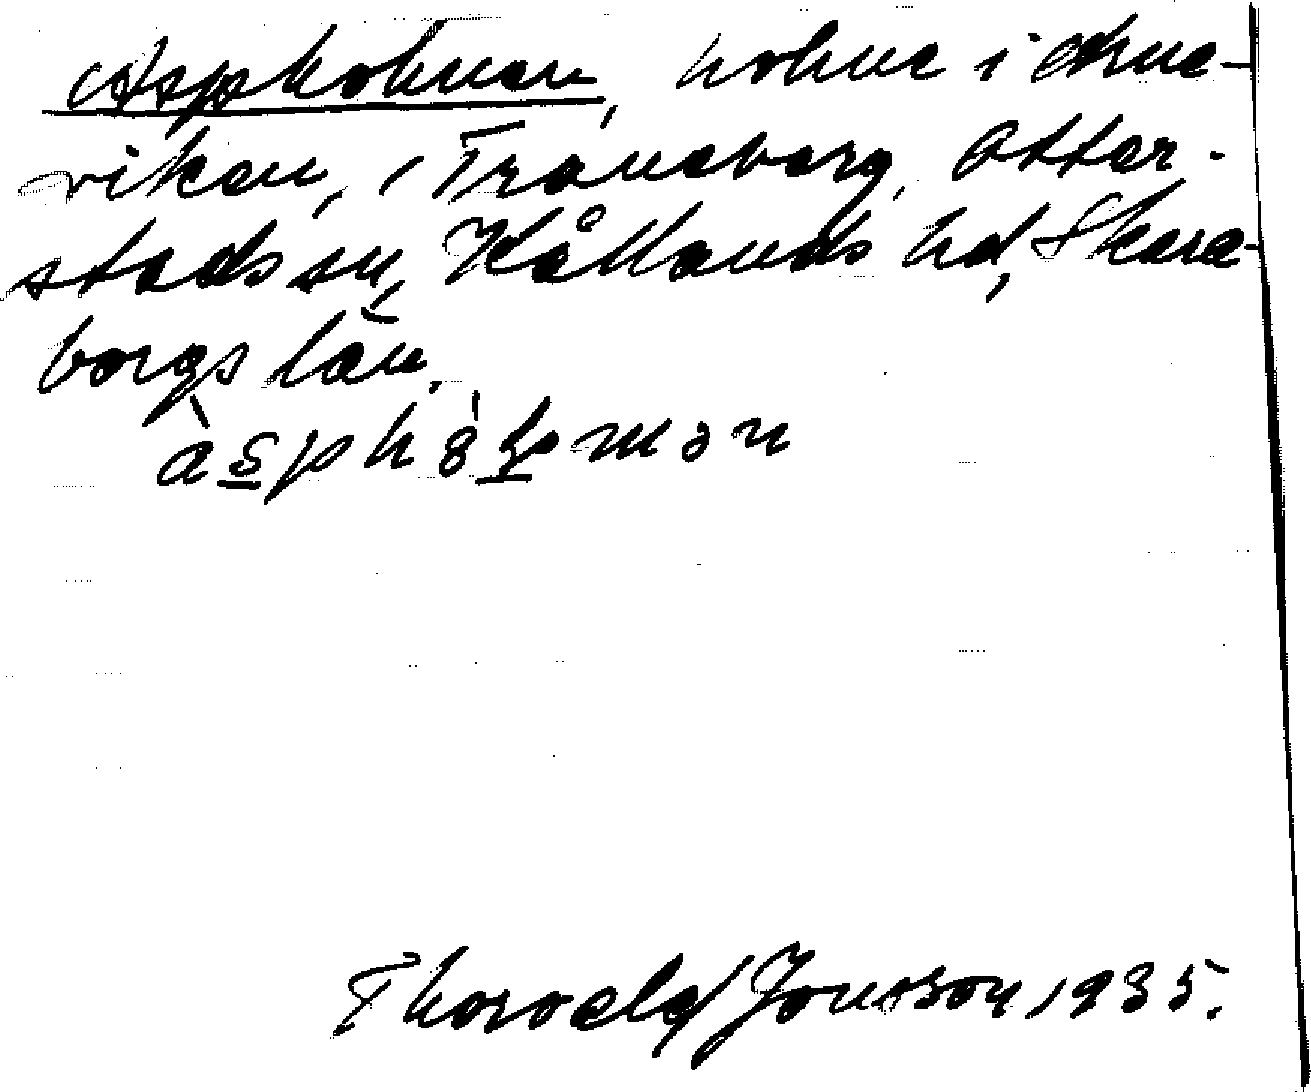 Aspholmen, holme i Arne-
viken, i Traneberg, Otter-
stads sn, Kållands hd, Skara-
borgs län.
Thorvald Jonsson 1935.